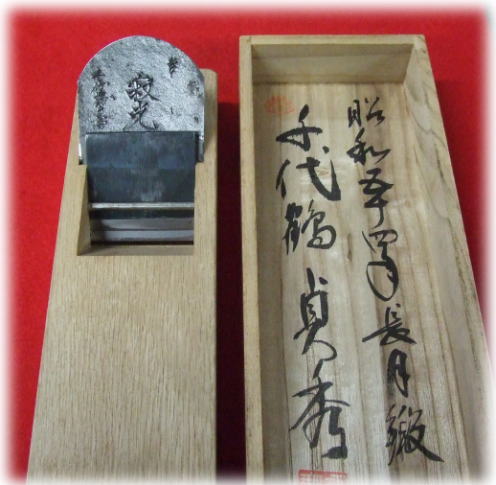 寂光
昭和五十四年長月鍛
千代鶴貞秀